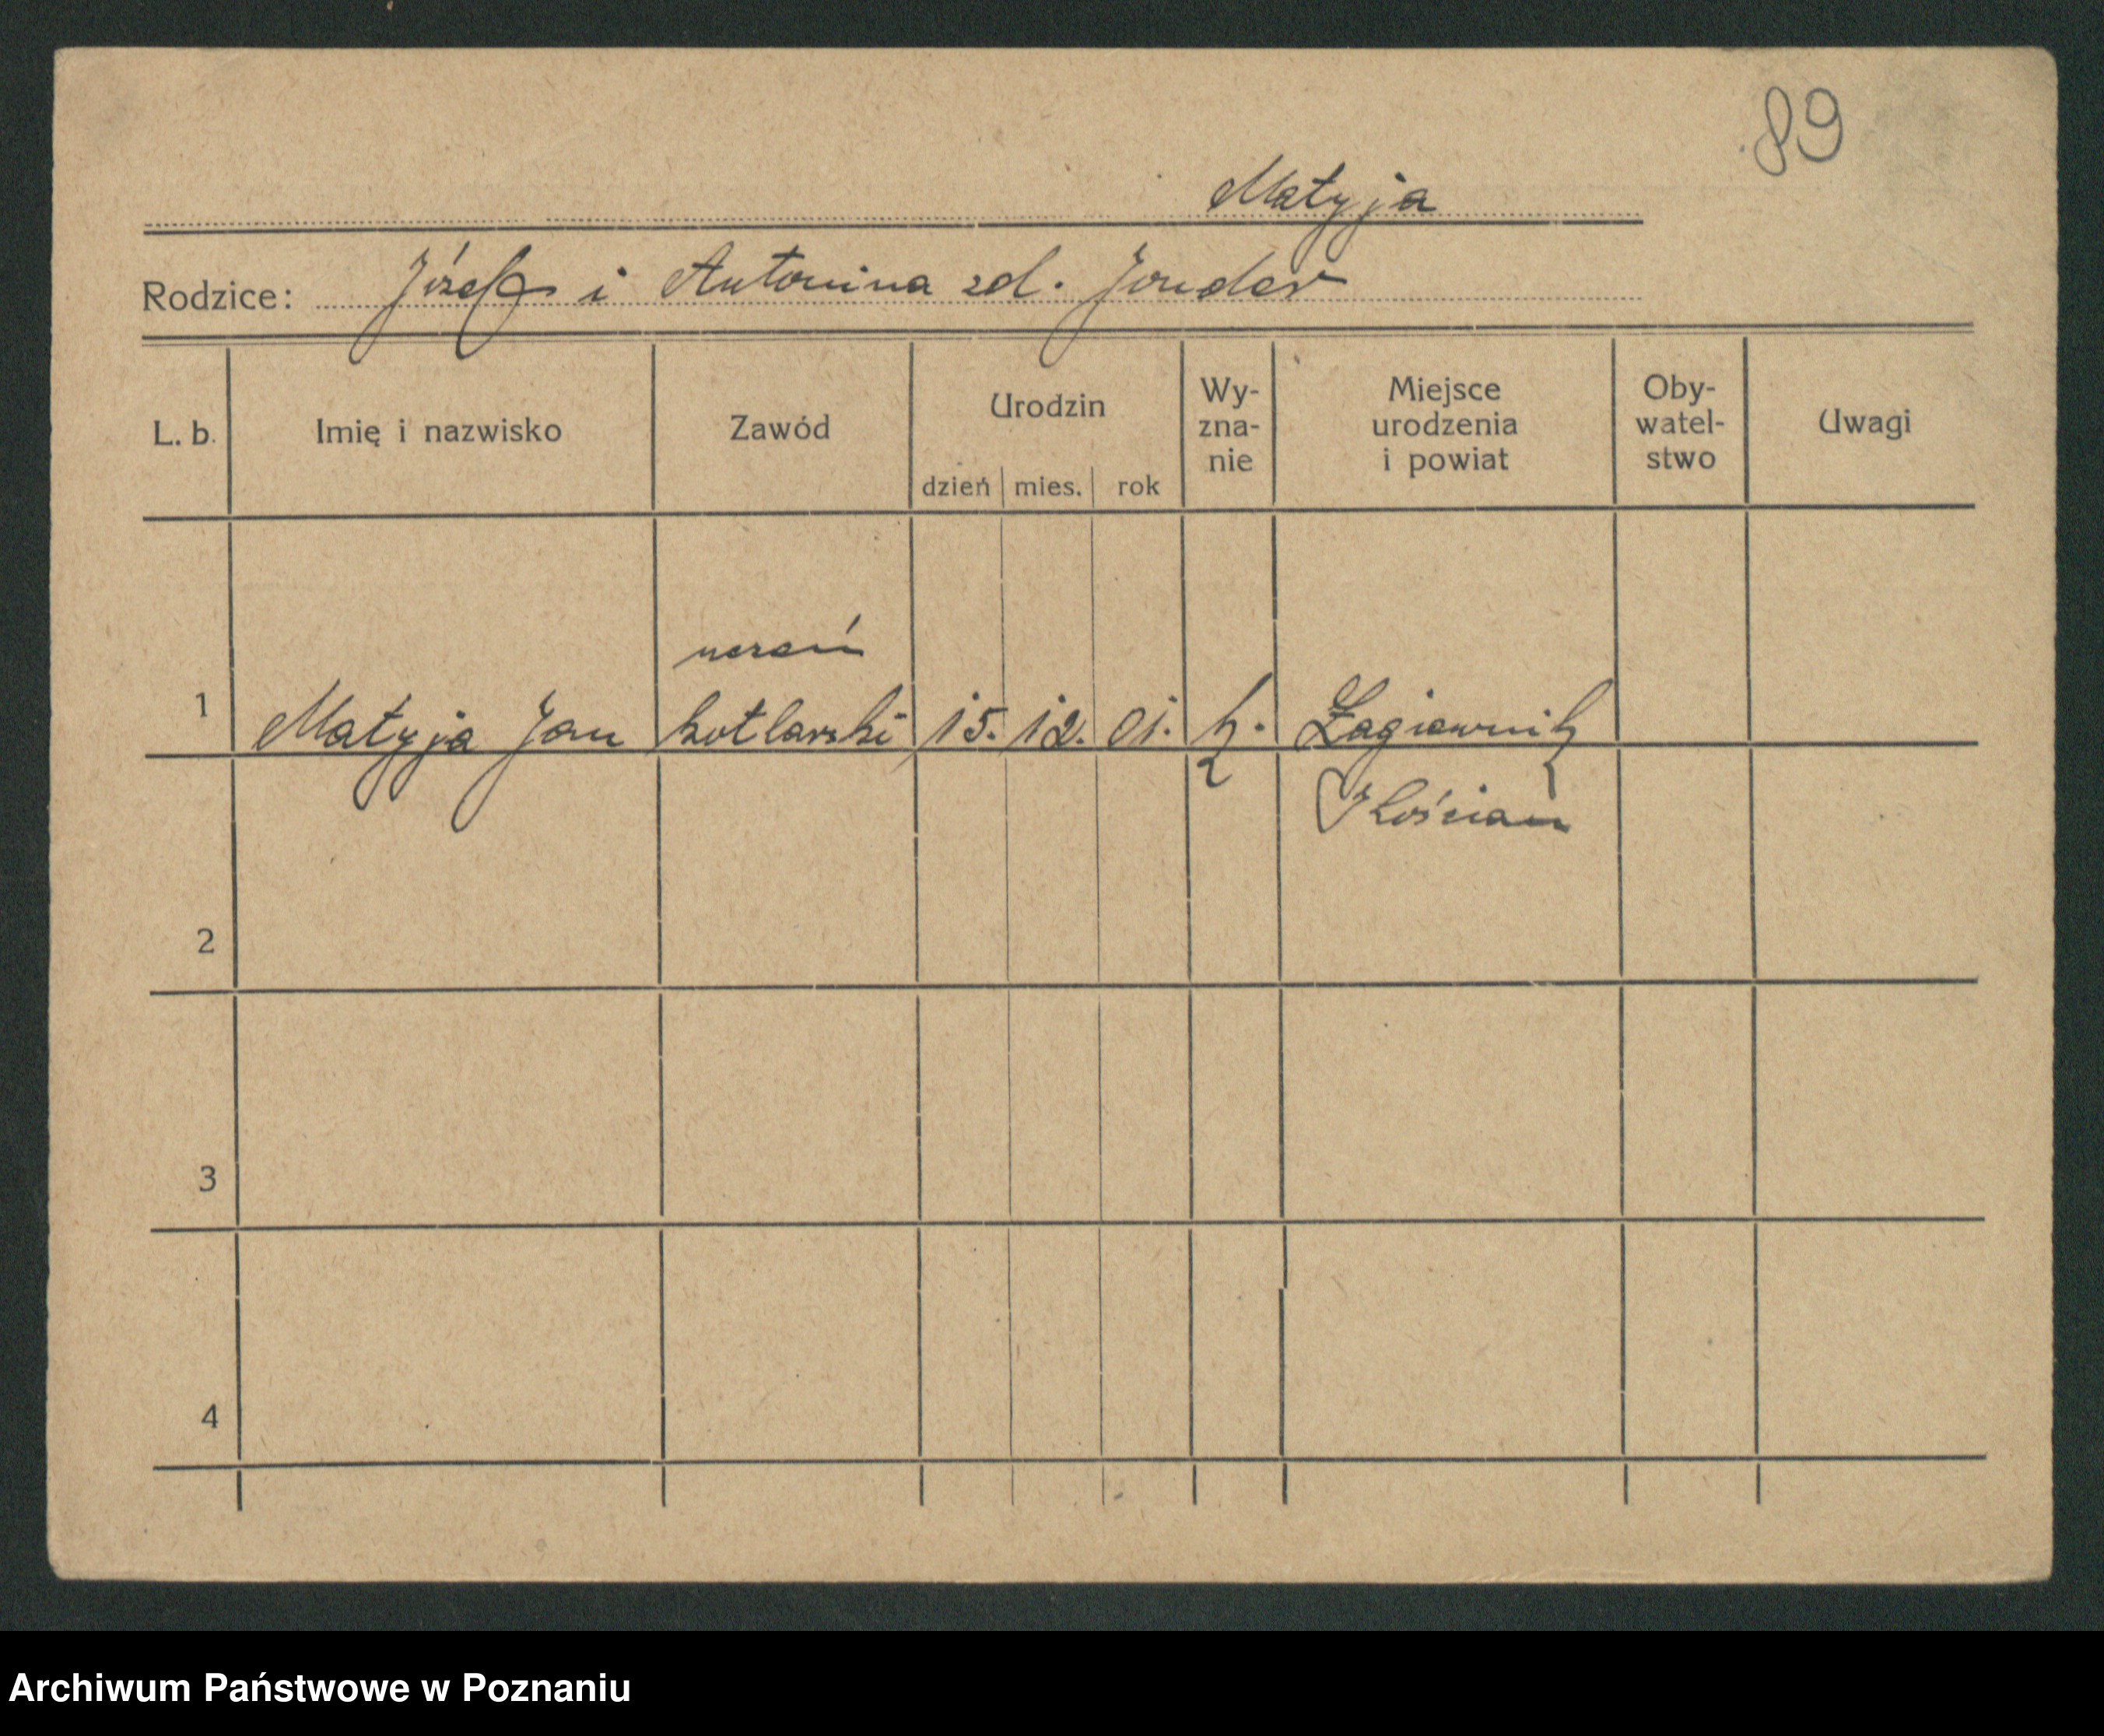 89
Matyja
Rodzice: Józef i Antonina zd. Jonder
L. b. Imię i nazwisko Zawód Urodzin dzień mies. rok Wy-zna-nie Miejsce urodzenia i powiat Oby-watel-stwo Uwagi
uczeń
1 Matyja Jan kotlarski 15. 12. 01. k. Łagiewnik
Kościan
2
3
4
Archiwum Państwowe w Poznaniu